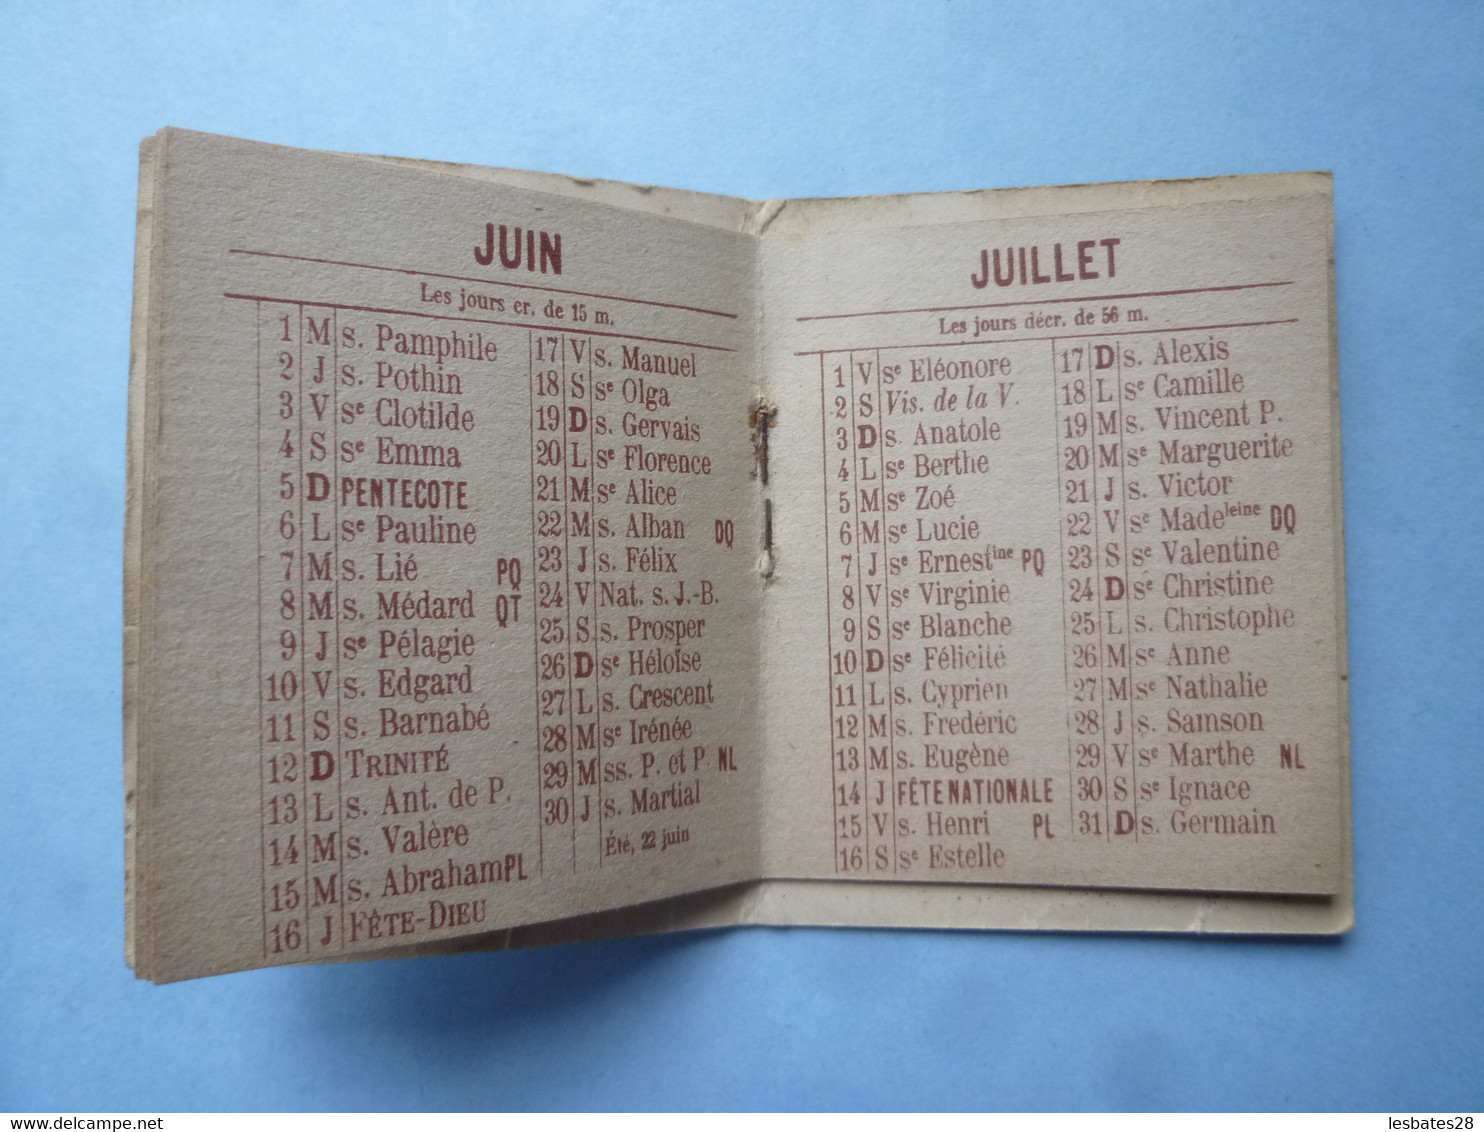 JUIN
Les jours cr. de 15 m.
1 M s. Pamphile
2 J s. Pothin
3 V Sᵉ Clotilde
4 S Sᵉ Emma
5 D PENTECOTE
6 L Sᵉ Pauline
7 M s. Lié PQ
8 M s. Médard QT
9 J Sᵉ Pélagie
10 V s. Edgard
11 S s. Barnabé
12 D TRINITÉ
13 L s. Ant. de P.
14 M s. Valère
15 M s. Abraham PL
16 J FÊTE-DIEU
17 V s. Manuel
18 S Sᵉ Olga
19 D s. Gervais
20 L Sᵉ Florence
21 M Sᵉ Alice
22 M s. Alban DQ
23 J s. Félix
24 V Nat. s. J.-B.
25 S s. Prosper
26 D Sᵉ Héloïse
27 L s. Crescent
28 M Sᵉ Irénée
29 M ss. P. et P. NL
30 J s. Martial
Été, 22 juin
JUILLET
Les jours décr. de 56 m.
1 V Sᵉ Eléonore
2 S Vis. de la V.
3 D s. Anatole
4 L Sᵉ Berthe
5 M Sᵉ Zoé
6 M Sᵉ Lucie
7 J Sᵉ Ernestⁱⁿᵉ PQ
8 V Sᵉ Virginie
9 S Sᵉ Blanche
10 D Sᵉ Félicité
11 L s. Cyprien
12 M s. Frédéric
13 M s. Eugène
14 J FÊTE NATIONALE
15 V s. Henri PL
16 S Sᵉ Estelle
17 D s. Alexis
18 L Sᵉ Camille
19 M s. Vincent P.
20 M Sᵉ Marguerite
21 J s. Victor
22 V Sᵉ Madeˡᵉⁱⁿᵉ DQ
23 S Sᵉ Valentine
24 D Sᵉ Christine
25 L s. Christophe
26 M Sᵉ Anne
27 M Sᵉ Nathalie
28 J s. Samson
29 V Sᵉ Marthe NL
30 S Sᵉ Ignace
31 D s. Germain
www.delcampe.net
lesbates28